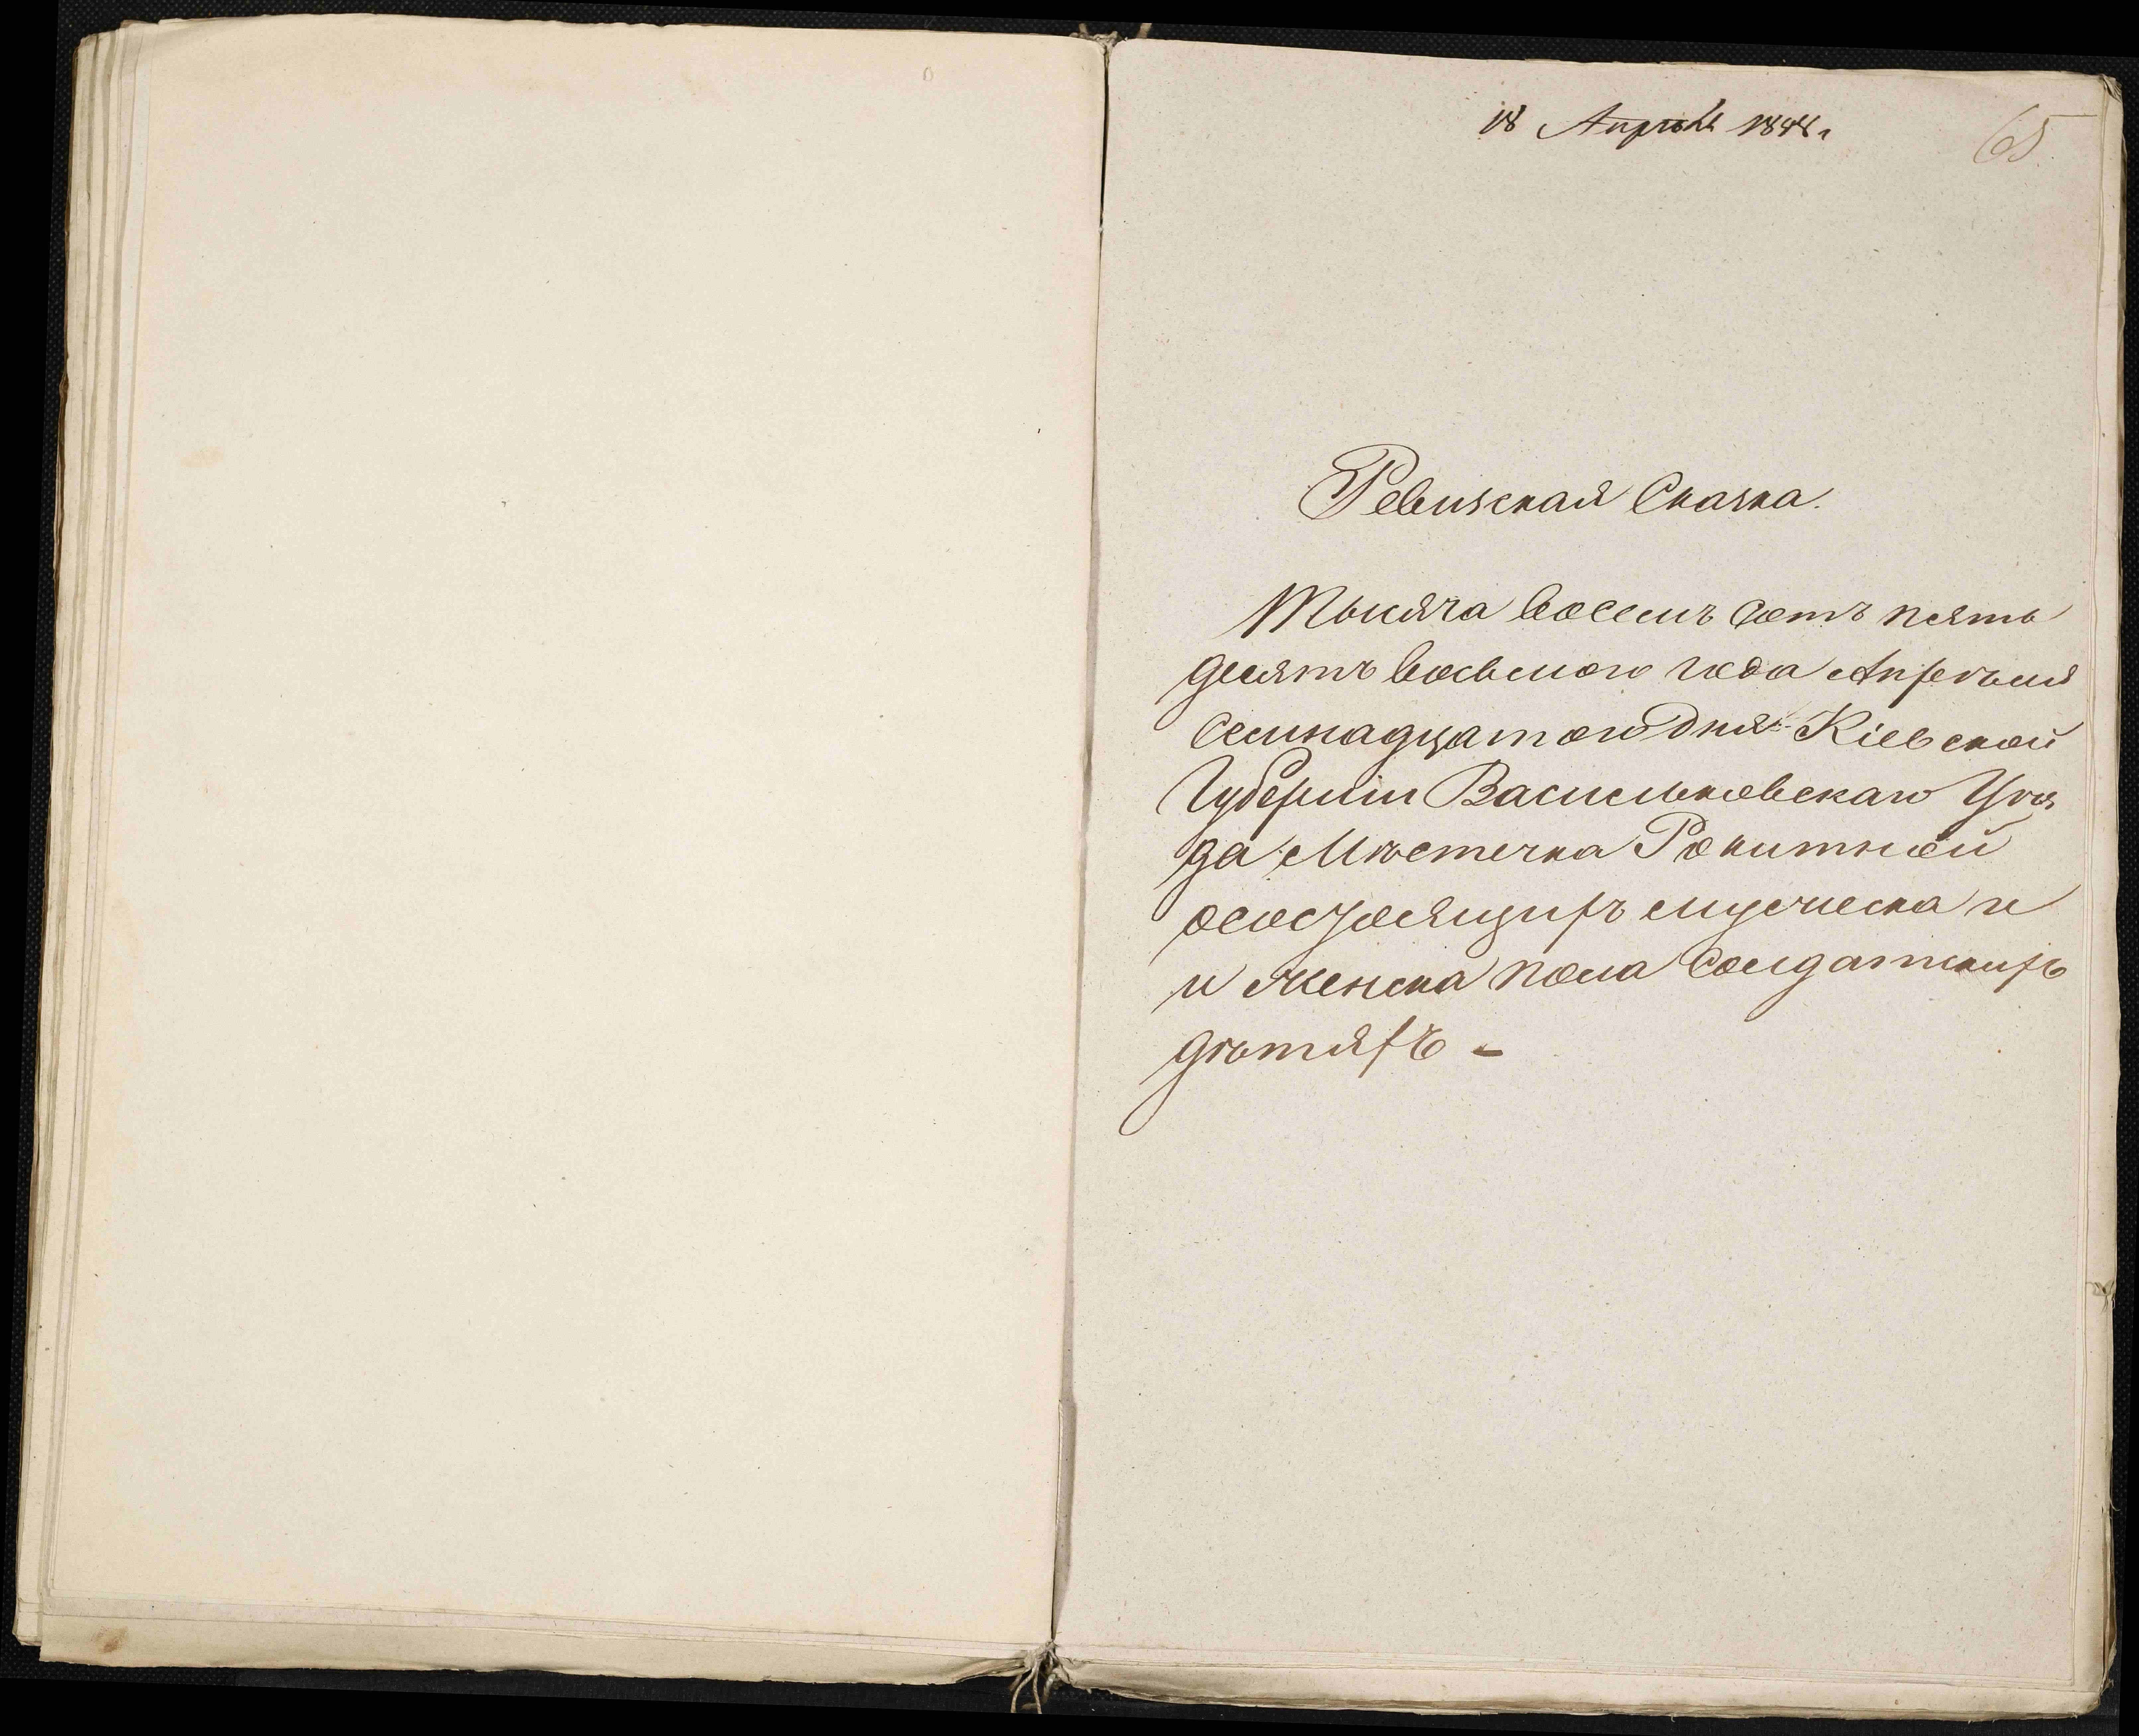 18 Апрѣля 1858 г
65
Ревизская Сказка.
Тысяча восемъ сотъ пять
десятъ восьмого года Апрѣля
семнадцатого дня Кіевской
Губерніи Васильковскаго Уѣз
да Мѣстечка Рокитной
о состоящихъ мужеска и
и женска пола Солдатскихъ
дѣтяхъ -